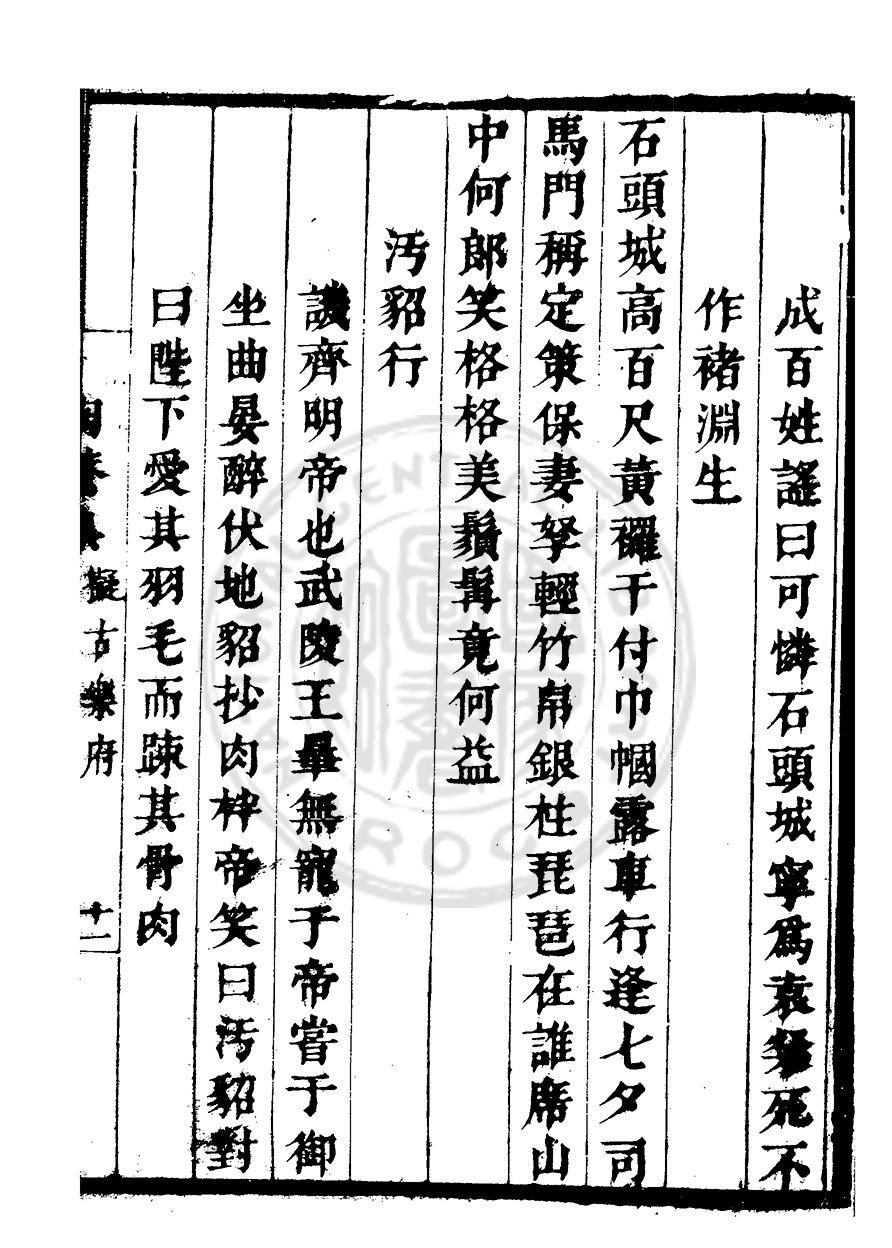 成百姓謠曰可憐石頭城寧爲袁粲死不
作褚淵生
石頭城高百尺黃羅干付巾幗露車行逢七夕司
馬門稱定策保妻孥輕竹帛銀柱琵琶在誰席山
中何郎笑格格美鬚髯竟何益
汚貂行
譏齊明帝也武陵王曅無寵于帝嘗于御
坐曲晏醉伏地貂抄肉柈帝笑曰汚貂對
曰陛下愛其羽毛而踈其骨肉
擬古樂府
十二